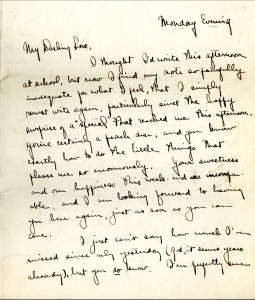 Monday Evening
My Darling Love,
I thought I'd write this afternoon
at school, but now I find my note so painfully
inadequate for what I feel, that I simply
must write again, particularly since the happy
surprise of a "special" that reached me this afternoon.
You're certainly a peach dear, and you know
exactly how to do the little things that
please me so enormously. Your sweetness
and our happiness this week-end was incompar-
able, and I am looking forward to having
you here again, just as soon as you can
come.
I just can't say how much I've
missed since only yesterday (God, it seems years
already), but you so know. I'm perfectly sure